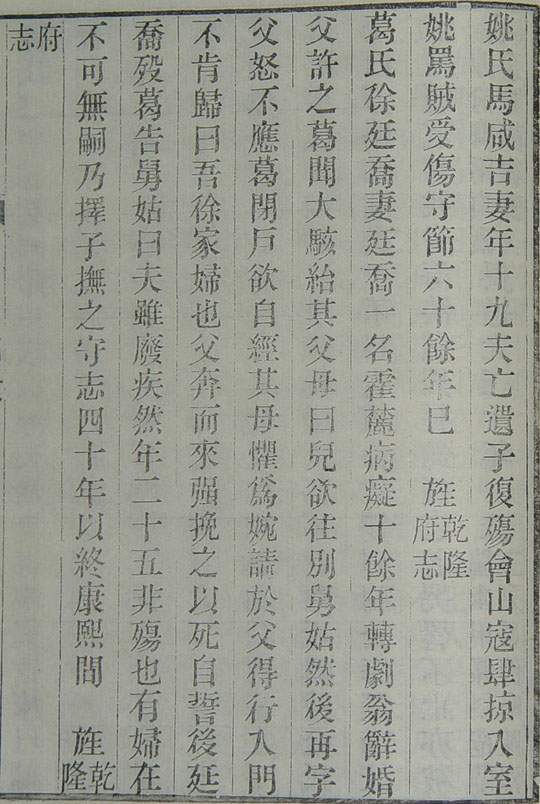 姚氏馬咸吉妻年十九夫亡遺子復殤會山寇肆掠入室
姚罵賊受傷守節六十餘年已　旌乾隆府志
葛氏徐廷喬妻廷喬一名霍麓病癡十餘年轉劇翁辭婚
父許之葛聞大駭紿其父母曰兒欲往別舅姑然後再字
父怒不應葛閉戶欲自經其母懼爲婉請於父得行入門
不肯歸曰吾徐家婦也父奔而來强挽之以死自誓後廷
喬歿葛告舅姑曰夫雖廢疾然年二十五非殤也有婦在
不可無嗣乃擇子撫之守志四十年以終康熙間　旌乾隆
府志